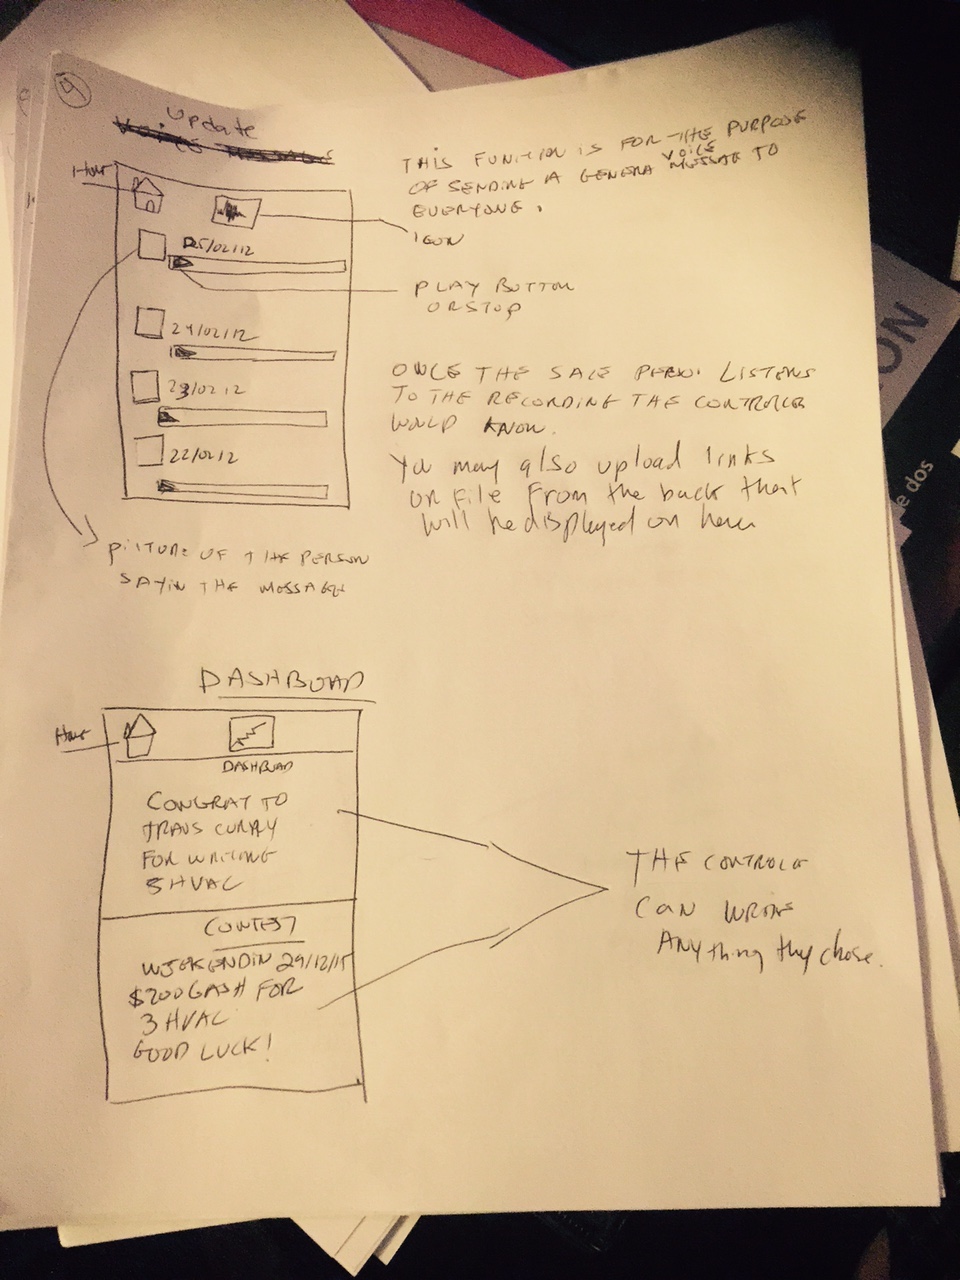 9
Update
Voice Message
THIS FUNCTION IS FOR THE PURPOSE
OF SENDING A GENERA VOICE MESSAGE TO
EVERYONE.
ICON
25/02/12
PLAY BUTTON
OR STOP
24/02/12
23/02/12
22/02/12
ONCE THE SALE PERSON LISTENS
TO THE RECORDING THE CONTROLER
WOULD KNOW.
You may also upload links
or File From the back that
will be displayed on here
PICTURE OF THE PERSON
SAYIN THE MESSAGE
DASHBOAD
DASHBOAD
CONGRAT TO
TRAVS CURRY
FOR WRITING
5 HVAC
CONTEST
WEEKENDIN 29/12/15
$200 CASH FOR
3 HVAC
GOOD LUCK!
THE CONTROLE
CAN WRITE
ANYthing they chose.
ON
e dos